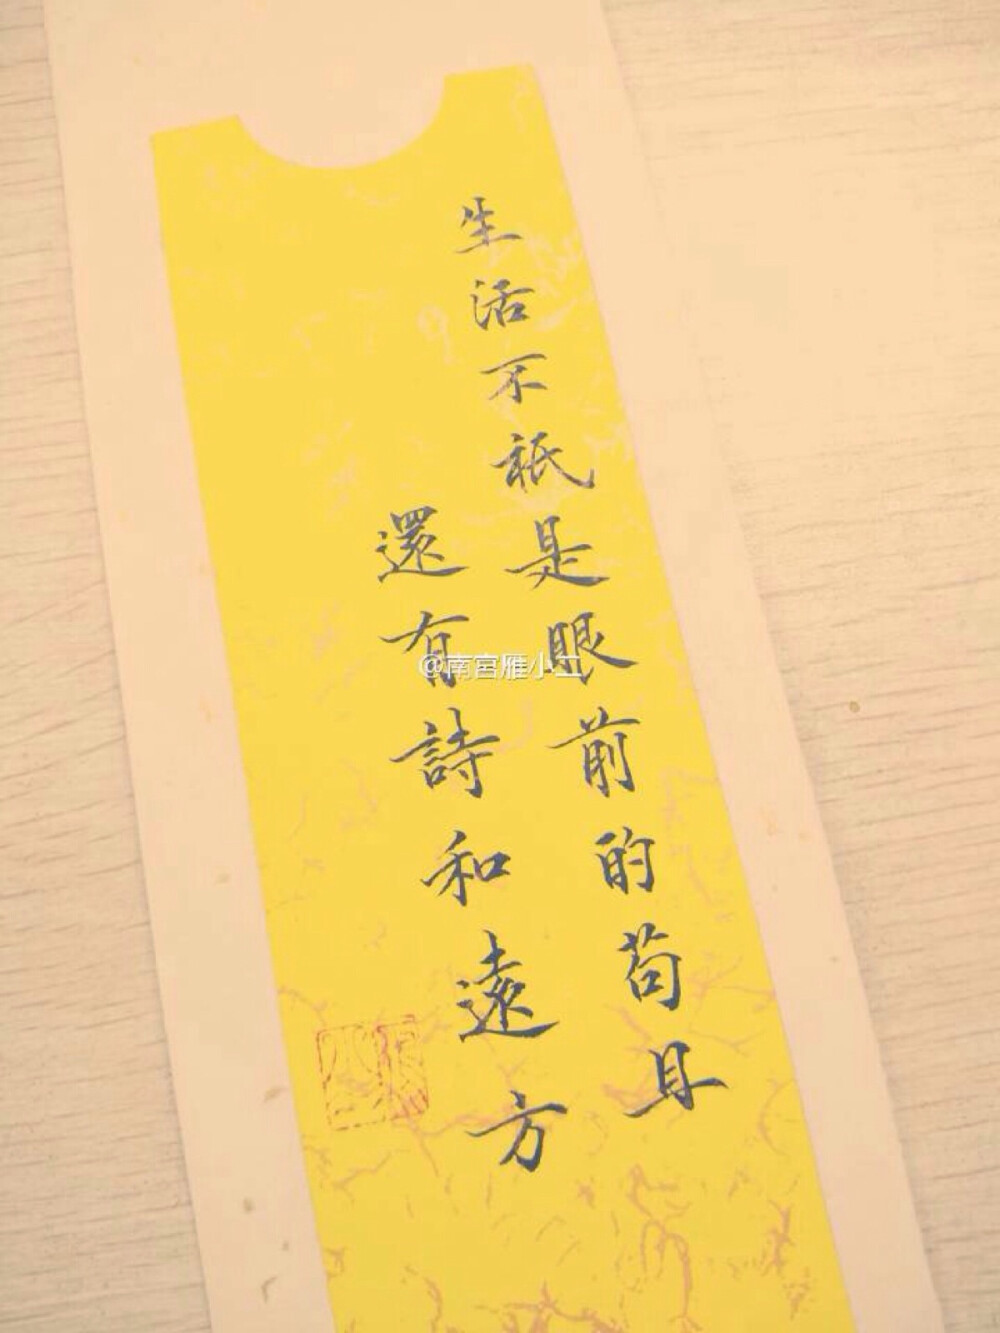 生活不祇是眼前的苟且
還有詩和遠方
@南宫雁小二